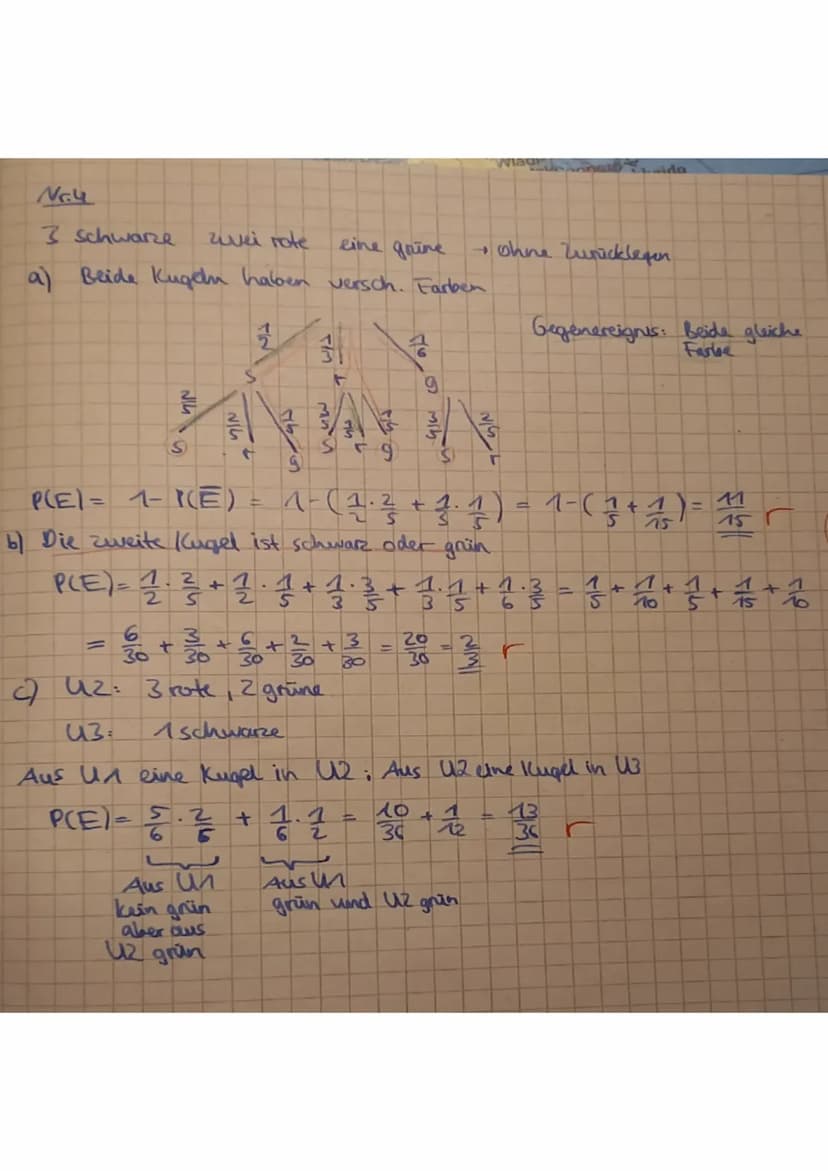 Nr.4
3 schwarze zwei rote eine grüne → ohne Zurücklegen
a) Beide Kugeln haben versch. Farben
Gegenereignis: Beide gleiche
Farbe
1/2 1/3 1/6
s r g
2/5 2/5 1/5 3/5 1/5 1/5 3/5 2/5
s r g s r g s r
P(E) = 1 - P(E̅) = 1 - (1/2 · 2/5 + 1/3 · 1/5) = 1 - (1/5 + 1/15) = 11/15 r
b) Die zweite Kugel ist schwarz oder grün
P(E) = 1/2 · 2/5 + 1/2 · 1/5 + 1/3 · 3/5 + 1/3 · 1/5 + 1/6 · 3/5 = 1/5 + 1/10 + 1/5 + 1/15 + 1/10
= 6/30 + 3/30 + 6/30 + 2/30 + 3/30 = 20/30 = 2/3 r
c) U2: 3 rote, 2 grüne
U3: 1 schwarze
Aus U1 eine Kugel in U2; Aus U2 eine Kugel in U3
P(E) = 5/6 · 2/6 + 1/6 · 1/2 = 10/36 + 1/12 = 13/36 r
Aus U1 Aus U1
kein grün grün und U2 grün
aber aus
U2 grün